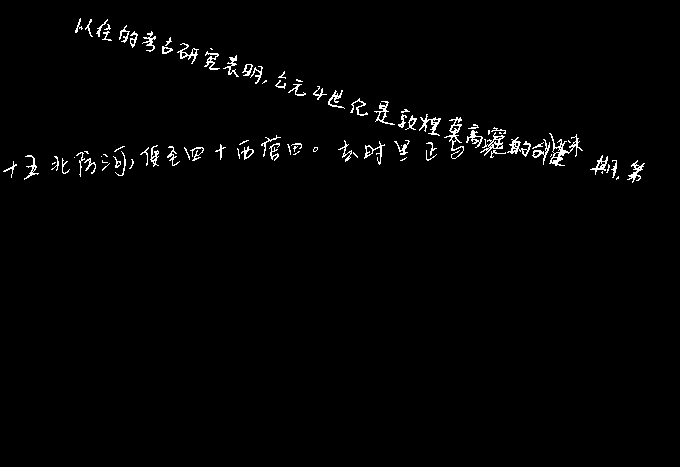 以往的考古研究表明,公元4世纪是敦煌莫高窟的创建期,第
十五北防河,便至四十西营田。去时里正与裹头